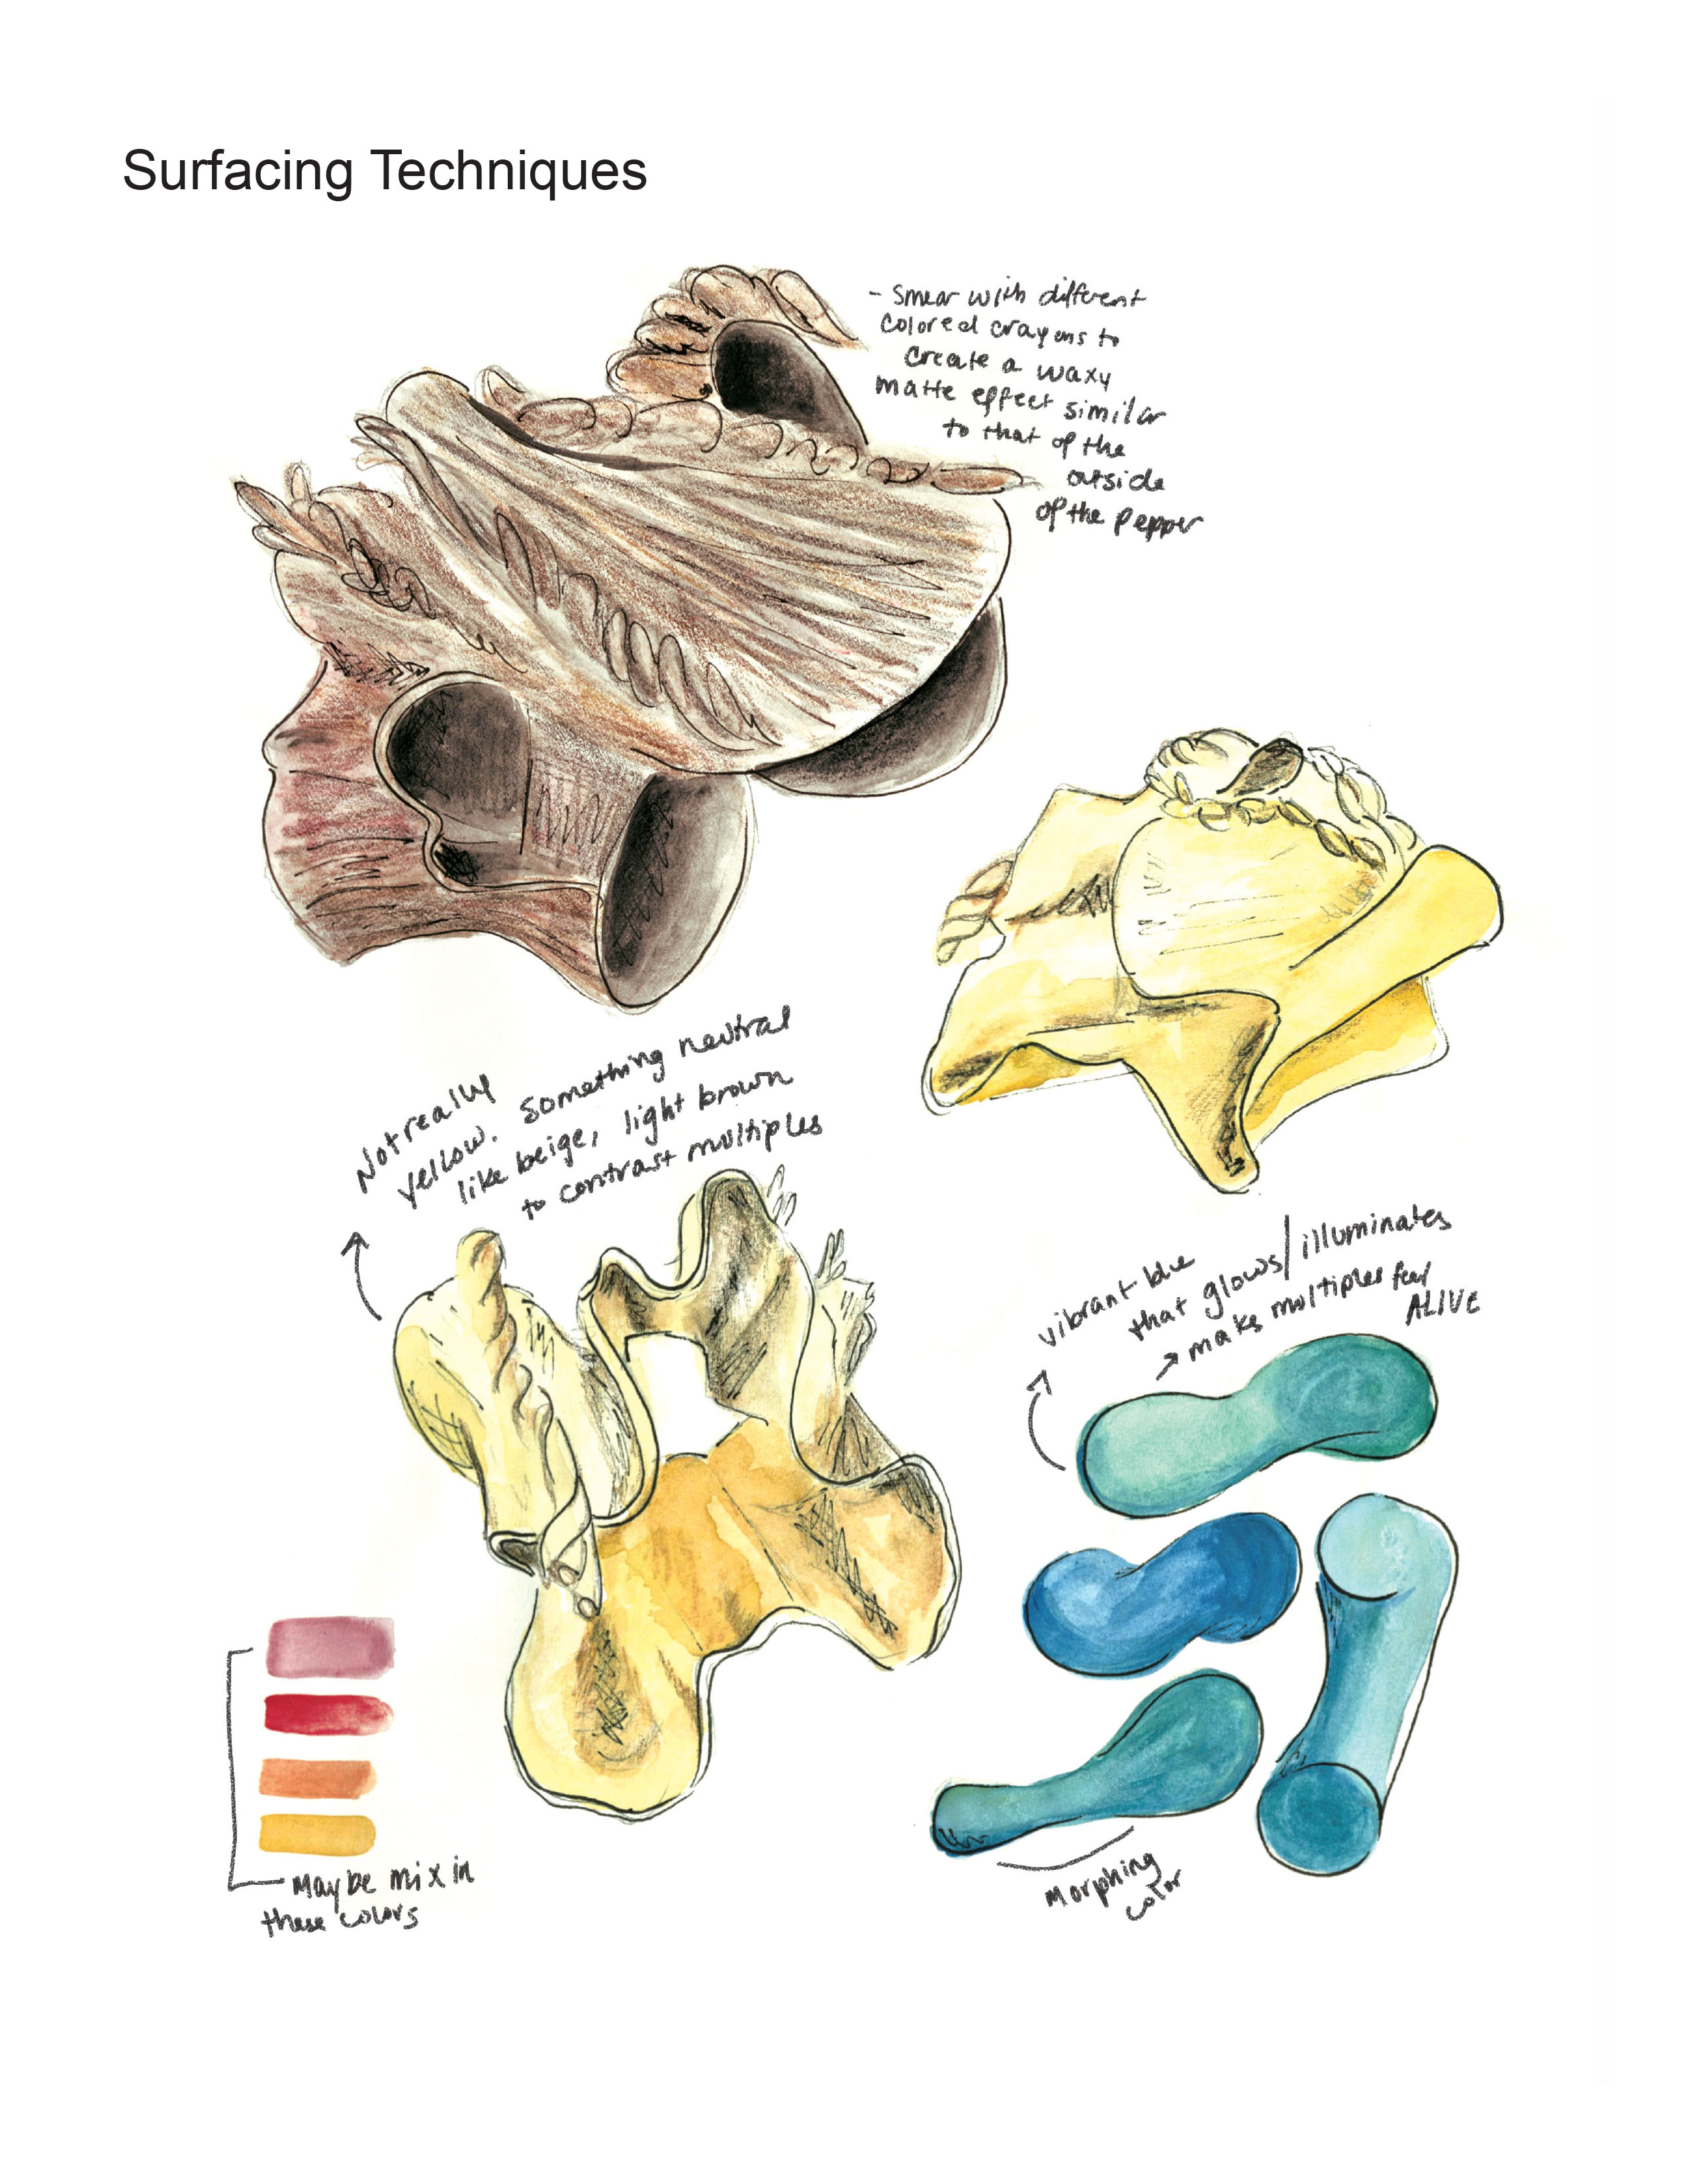 Surfacing Techniques
- Smear with different
colored crayons to
create a waxy
matte effect similar
to that of the
outside
of the pepper
Not really
yellow. Something neutral
like beige, light brown
to contrast multiples
vibrant blue
that glows/illuminates
→ makes multiples feel
ALIVE
Morphing
color
Maybe mix in
these colors